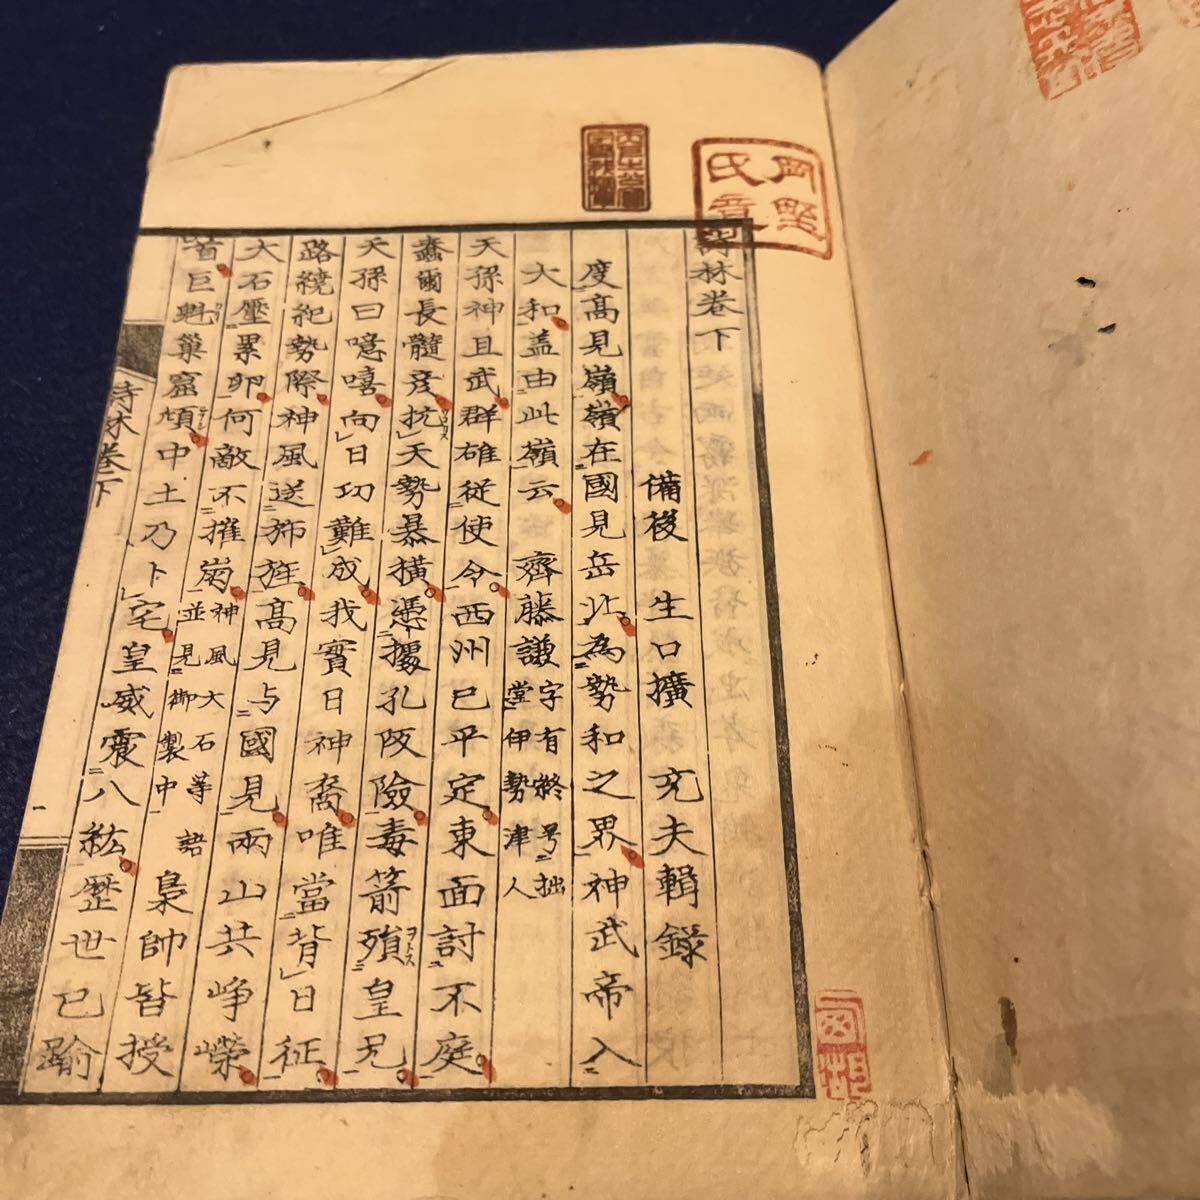 詩林卷下
備後 生口擴 充夫輯錄
度髙見嶺嶺在國見岳北為勢和之界神武帝入
大和盖由此嶺云 齊藤謙字有終号拙堂伊勢津人
天孫神且武群雄従使令西州已平定東面討不庭
蠢爾長髓彦抗天勢暴橫憑據孔阪險毒箭殞皇兄
天孫曰噫嘻向日功難成我實日神裔唯當背日征
路繞紀勢際神風送斾旌髙見与國見兩山共崢嶸
大石壓累卵何敵不摧崩神風大石等語並見御製中 梟帥皆授
首巨魁巢窟傾中土乃卜宅皇威震八紘歷世已踰
詩林卷下
一
岡野氏章